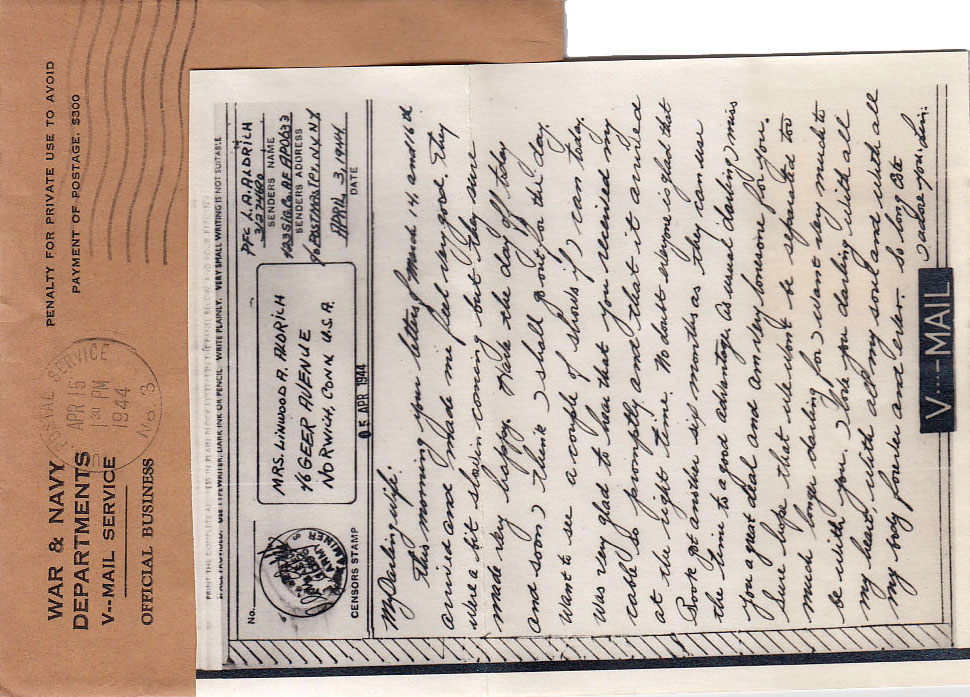 WAR & NAVY
DEPARTMENTS
V--MAIL SERVICE
OFFICIAL BUSINESS
PENALTY FOR PRIVATE USE TO AVOID
PAYMENT OF POSTAGE, $300
POSTAL SERVICE
APR 15
1 30 PM
1944
No. 3
No.
CENSORS STAMP
MRS. LINWOOD A. ALDRICH
46 GEER AVENUE
NORWICH, CONN. U.S.A.
05 APR 1944
PFC L.A. ALDRICH
SENDERS NAME
SENDERS ADDRESS
c/o POSTMASTER, N.Y. N.Y.
APRIL 3, 1944
DATE
My Darling wife:
This morning you letters of March 14, and 16th
arrived and made me feel very good. They
were a bit slow in coming but they sure
made very happy. Have the day off today
and soon I think I shall go out for the day.
Want to see a couple of shows if I can today.
Was very glad to hear that you received my
cable so promptly and that it arrived
at the right time. No doubt everyone is glad that
Book got another six months as they can use
the time to a good advantage. As usual darling I miss
you a great deal and am very lonesome for you.
Sure hope that we won't be separated too
much longer darling for I want very much to
be with you. I love you darling with all
my heart, with all my soul and with all
my body forever and ever. So long Be
I adore you, Lin.
V---MAIL